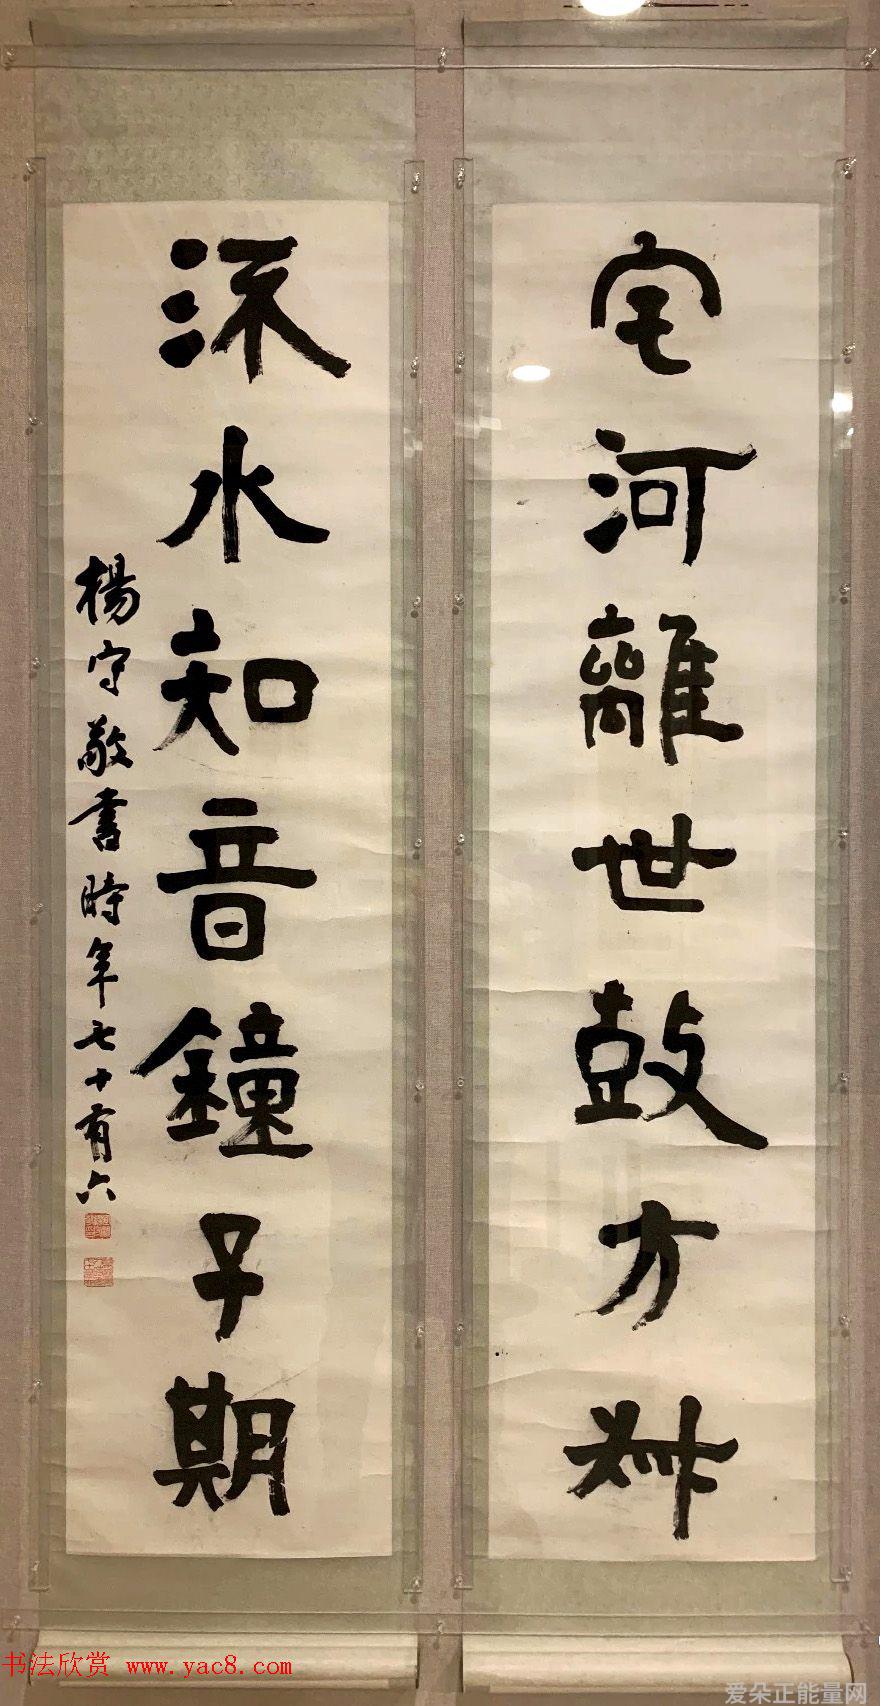 宅河離世鼓方叔
流水知音鐘子期
楊守敬書時年七十有六
书法欣赏 www.yac8.com
爱朵正能量网